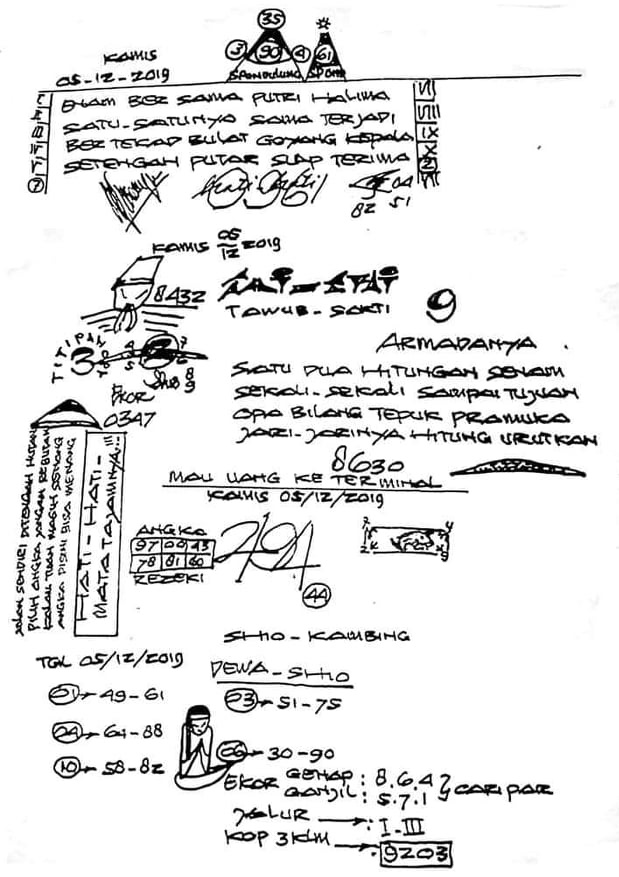 35
3 90 4 61
KAMIS
05-12-2019
SPANDULUNG
ENAM BER SAMA PUTRI HALIMA
SATU-SATUNYA SAMA TERJADI
BERTEKAD BULAT GOYANG KEPALA
SETENGAH PUTAR SIAP TERIMA
VII
VIII
IX
X
82 51
KAMIS 05/12 2019
8432
TAWUB-SAKTI
9
TITIPAN
3
EKOR
0347
ARMADANYA
SATU DUA HITUNGAN SENAM
SEKALI-SEKALI SAMPAI TUJUAN
OPA BILANG TEPUK PRAMUKA
JARI-JARINYA HITUNG URUTKAN
8630
MAU UANG KE TERMINAL
KAMIS 05/12/2019
JALAN SENDIRI DITENGAH HUTAN
PILIH ANGKA JANGAN REBUTAN
KALAU TUAN MASIH SENANG
ANGKA DISINI BISA MENANG
HATI-HATI-
MATATAJAMNYA...!!!
ANGKA
97 04 43
78 81 60
REZEKI
44
SHIO-KAMBING
TGL 05/12/2019
DEWA-SHIO
01 49-61
23 51-75
24 64-88
06 30-90
10 58-82
EKOR GENAP : 8.6.4
GANJIL : 5.7.1 CARI PAR
JALUR : I-III
KOP 3KLM : 9203